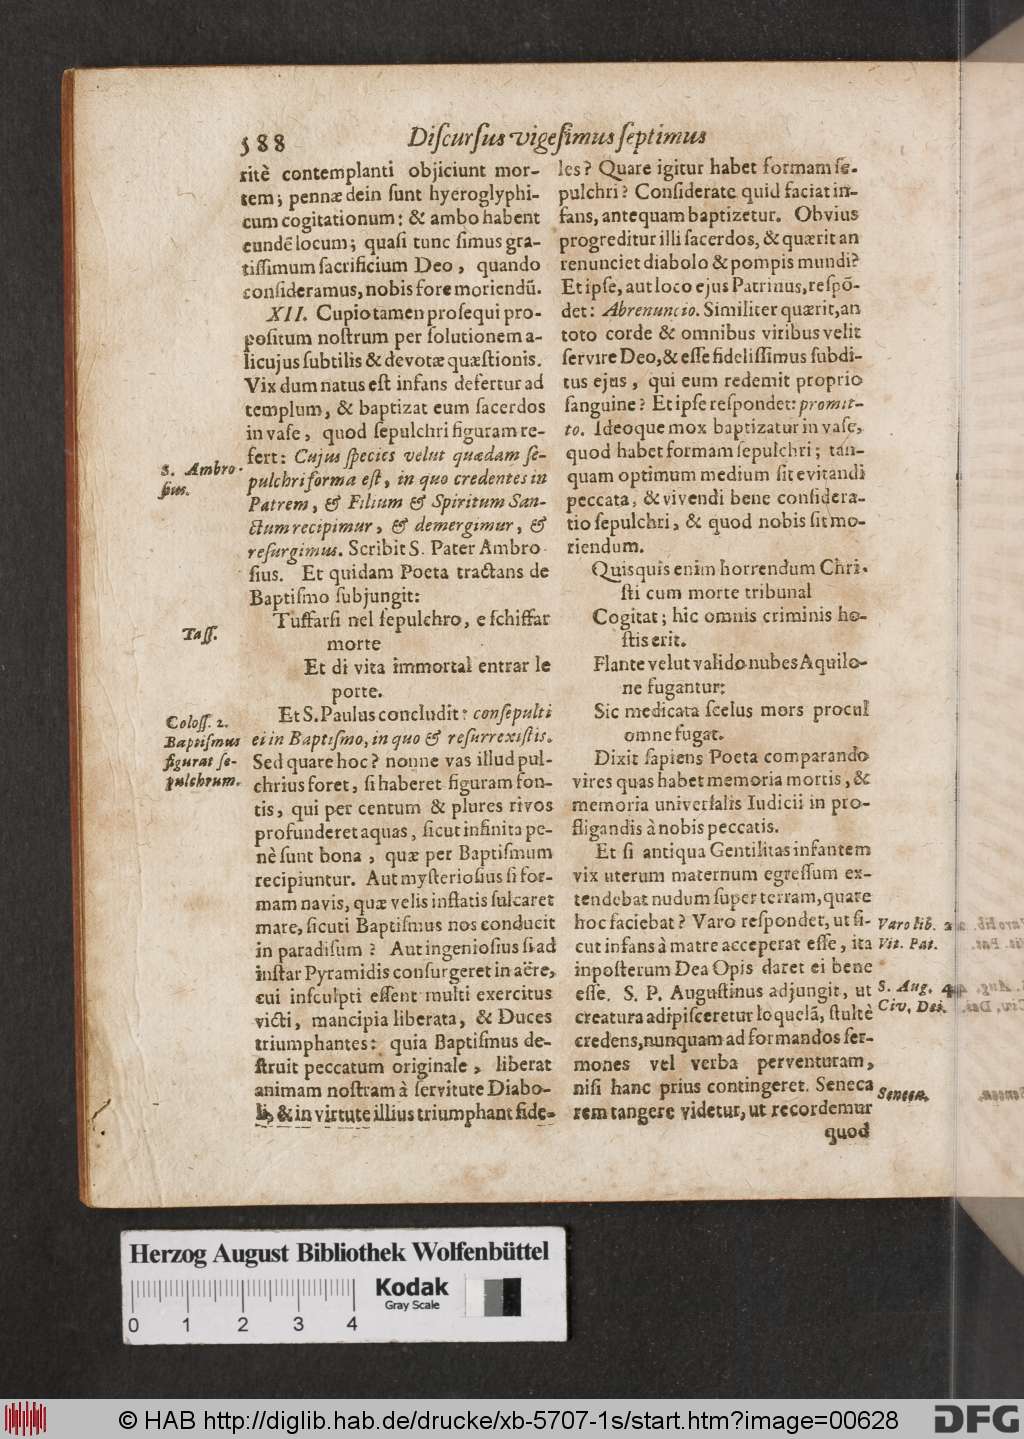 588 Diſcurſus vigeſimus ſeptimus
ritè contemplanti objiciunt mor-
tem; pennæ dein ſunt hyeroglyphi-
cum cogitationum: & ambo habent
eundẽ locum; quaſi tunc ſimus gra-
tiſſimum ſacrificium Deo, quando
conſideramus, nobis fore moriendũ.
XII. Cupio tamen proſequi pro-
poſitum noſtrum per ſolutionem a-
licujus ſubtilis & devotæ quæſtionis.
Vix dum natus eſt infans defertur ad
templum, & baptizat eum ſacerdos
in vaſe, quod ſepulchri figuram re-
fert: Cujus ſpecies velut quædam ſe-
S. Ambro-
ſius.
pulchri forma eſt, in quo credentes in
Patrem, & Filium & Spiritum San-
ctum recipimur, & demergimur, &
reſurgimus. Scribit S. Pater Ambro-
ſius. Et quidam Poeta tractans de
Baptiſmo ſubjungit:
Tuffarſi nel ſepulchro, e ſchiffar
Taſſ.
morte
Et di vita immortal entrar le
porte.
Et S. Paulus concludit: conſepulti
Coloſſ. 2.
Baptiſmus
figurat ſe-
pulchrum.
ei in Baptiſmo, in quo & reſurrexiſtis.
Sed quare hoc? nonne vas illud pul-
chrius foret, ſi haberet figuram fon-
tis, qui per centum & plures rivos
profunderet aquas, ſicut infinita pe-
nè ſunt bona, quæ per Baptiſmum
recipiuntur. Aut myſterioſius ſi for-
mam navis, quæ velis inflatis ſulcaret
mare, ſicuti Baptiſmus nos conducit
in paradiſum? Aut ingenioſius ſi ad
inſtar Pyramidis conſurgeret in aëre,
cui inſculpti eſſent multi exercitus
victi, mancipia liberata, & Duces
triumphantes: quia Baptiſmus de-
ſtruit peccatum originale, liberat
animam noſtram à ſervitute Diabo-
li, & in virtute illius triumphant fide-
les? Quare igitur habet formam ſe-
pulchri? Conſiderate quid faciat in-
fans, antequam baptizetur. Obvius
progreditur illi ſacerdos, & quærit an
renunciet diabolo & pompis mundi?
Et ipſe, aut loco ejus Patrinus, reſpõ-
det: Abrenuncio. Similiter quærit, an
toto corde & omnibus viribus velit
ſervire Deo, & eſſe fideliſſimus ſubdi-
tus ejus, qui eum redemit proprio
ſanguine? Et ipſe reſpondet: promit-
to. Ideoque mox baptizatur in vaſe,
quod habet formam ſepulchri; tan-
quam optimum medium ſit evitandi
peccata, & vivendi bene conſidera-
tio ſepulchri, & quod nobis ſit mo-
riendum.
Quisquis enim horrendum Chri-
ſti cum morte tribunal
Cogitat; hic omnis criminis ho-
ſtis erit.
Flante velut valido nubes Aquilo-
ne fugantur:
Sic medicata ſcelus mors procul
omne fugat.
Dixit ſapiens Poeta comparando
vires quas habet memoria mortis, &
memoria univerſalis Iudicii in pro-
fligandis à nobis peccatis.
Et ſi antiqua Gentilitas infantem
vix uterum maternum egreſſum ex-
tendebat nudum ſuper terram, quare
hoc faciebat? Varo reſpondet, ut ſi-
Varo lib. 2.
Vit. Pat.
cut infans à matre acceperat eſſe, ita
inpoſterum Dea Opis daret ei bene
eſſe. S. P. Auguſtinus adjungit, ut
S. Aug. 4.
Civ, Dei.
creatura adipiſceretur loquelã, ſtultè
credens, nunquam ad formandos ſer-
mones vel verba perventuram,
niſi hanc prius contingeret. Seneca
Seneca.
rem tangere videtur, ut recordemur
quod
Herzog August Bibliothek Wolfenbüttel
Kodak
Gray Scale
0 1 2 3 4
© HAB http://diglib.hab.de/drucke/xb-5707-1s/start.htm?image=00628
DFG